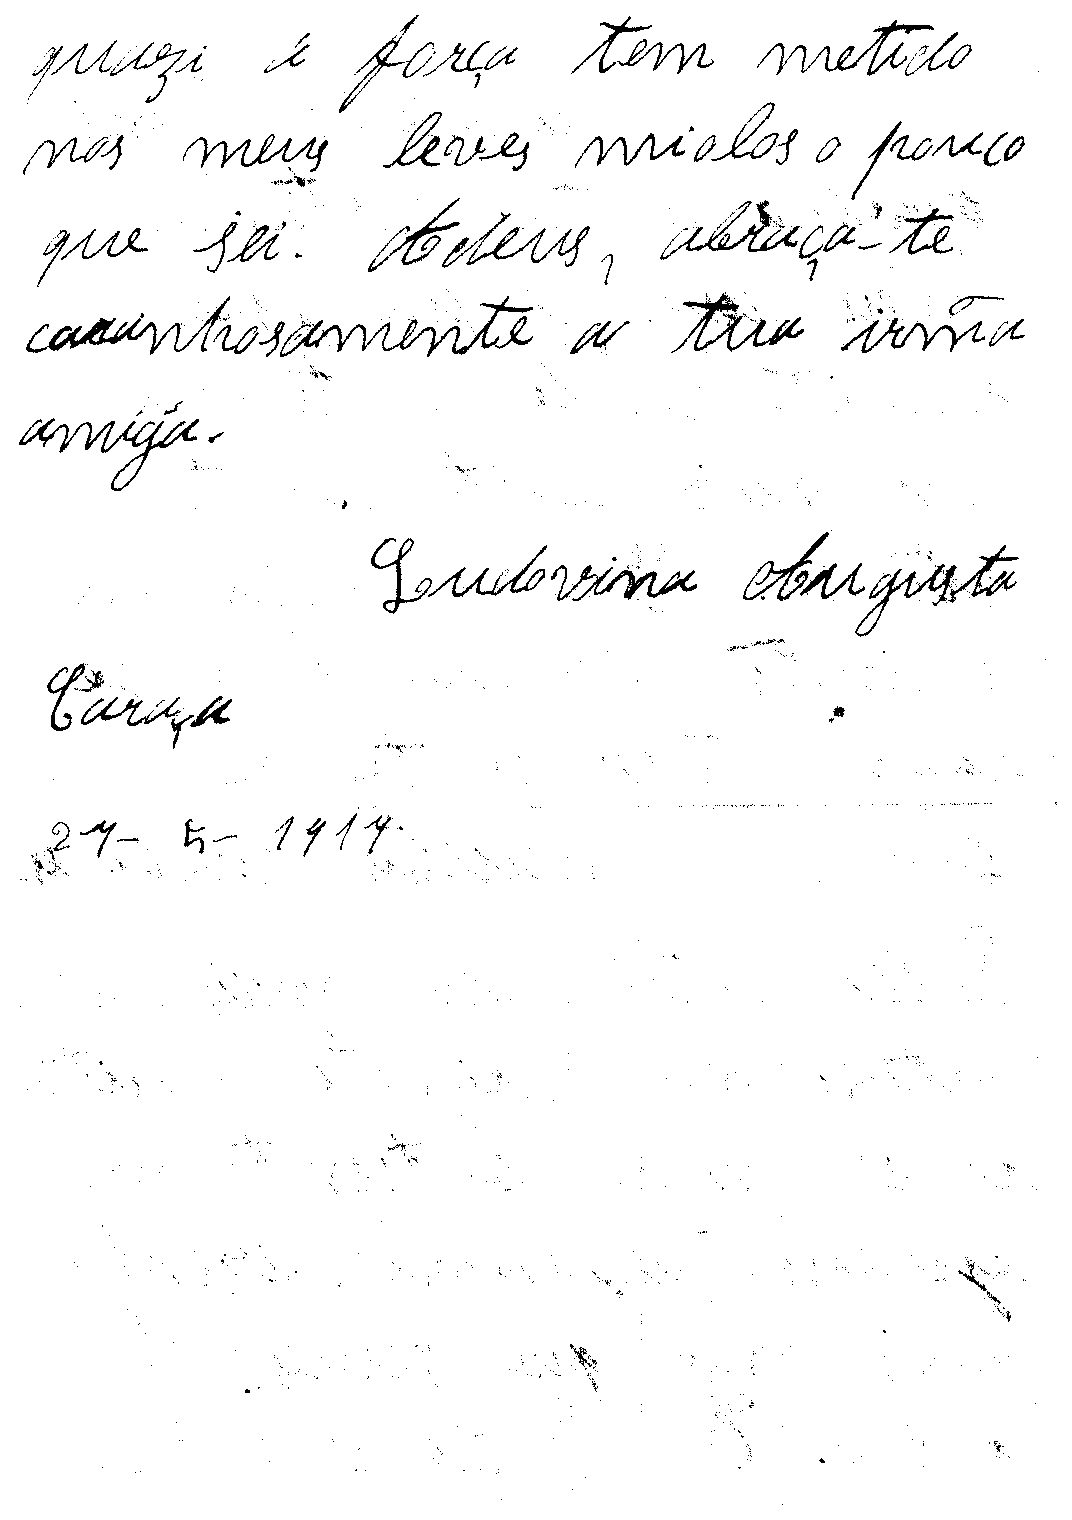 quazi á força tem metido
nos meus leves miolos o pouco
que sei. Adeus, abraça-te
carinhosamente a tua irmã
amiga.
Ludovina Augusta
Caraça
27-5-1917.